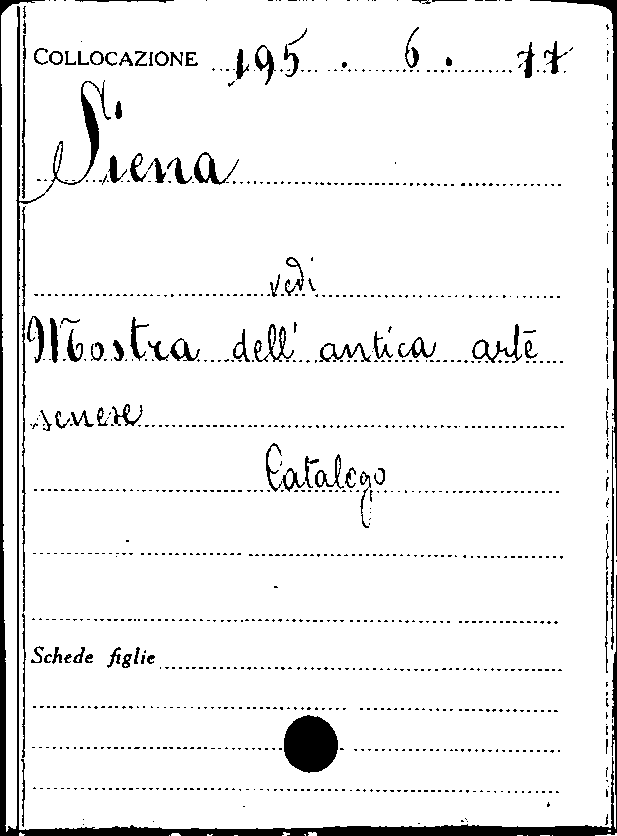 COLLOCAZIONE 195. 6. 77
Siena
vedi
Mostra dell' antica arte
senese
Catalogo
Schede figlie